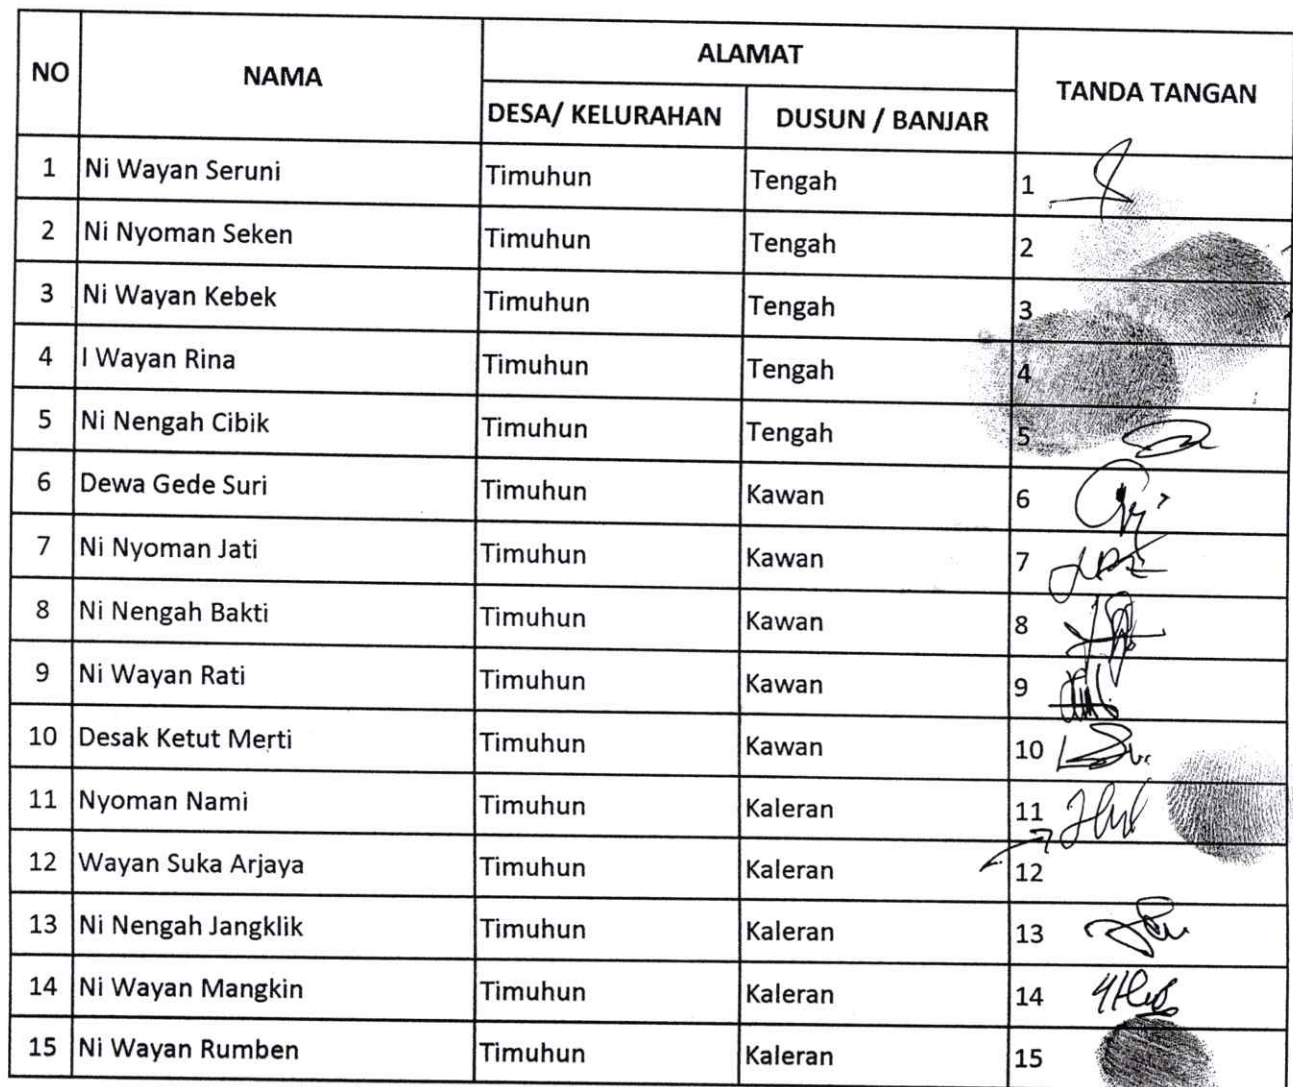 NO NAMA ALAMAT TANDA TANGAN
DESA/ KELURAHAN DUSUN / BANJAR
1 Ni Wayan Seruni Timuhun Tengah 1
2 Ni Nyoman Seken Timuhun Tengah 2
3 Ni Wayan Kebek Timuhun Tengah 3
4 I Wayan Rina Timuhun Tengah 4
5 Ni Nengah Cibik Timuhun Tengah 5
6 Dewa Gede Suri Timuhun Kawan 6
7 Ni Nyoman Jati Timuhun Kawan 7
8 Ni Nengah Bakti Timuhun Kawan 8
9 Ni Wayan Rati Timuhun Kawan 9
10 Desak Ketut Merti Timuhun Kawan 10
11 Nyoman Nami Timuhun Kaleran 11
12 Wayan Suka Arjaya Timuhun Kaleran 12
13 Ni Nengah Jangklik Timuhun Kaleran 13
14 Ni Wayan Mangkin Timuhun Kaleran 14
15 Ni Wayan Rumben Timuhun Kaleran 15